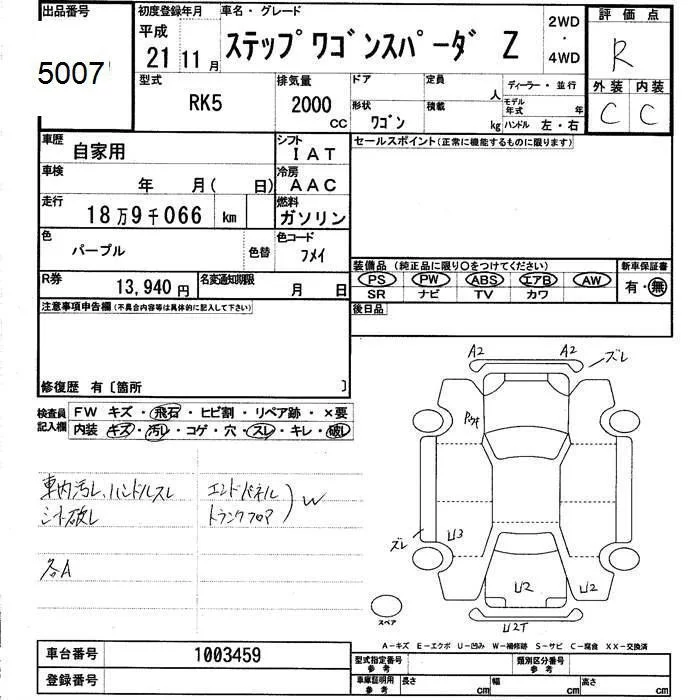 出品番号
5007
初度登録年月
平成
21 11月
車名・グレード
ステップワゴンスパーダ Z
2WD
・
4WD
評価点
R
外装 内装
C C
型式
RK5
排気量
2000
CC
ドア
形状
ワゴン
定員
人
積載
kg
ディーラー・並行
モデル年式
年
ハンドル 左・右
車歴
自家用
シフト
IAT
車検
年 月( 日)
冷房
AAC
走行
18万9千066 km
燃料
ガソリン
色
パープル
色替
色コード
フメイ
R券
13,940円
名変通知期限
月 日
セールスポイント(正常に機能するものに限ります)
装備品 (純正品に限り○をつけてください)
PS PW ABS エアB AW
SR ナビ TV カワ
新車保証書
有・無
後日品
注意事項申告欄(不具合内容等は具体的に記入して下さい)
修復歴 有〔箇所 〕
検査員
記入欄
FW キズ・飛石・ヒビ割・リペア跡・×要
内装 キズ・汚レ・コゲ・穴・スレ・キレ・破レ
車内汚レ、ハンドルスレ
シート破レ
各A
エンドパネル
トランクフロア
W
A2 A2 ズレ
Pウキ
ズレ
U3
U2 U2
U2T
スペア
A-キズ E-エクボ U-凹み W-補修跡 S-サビ C-腐食 XX-交換済
車台番号
1003459
登録番号
型式指定番号
参考
類別区分番号
参考
車庫証明用
参考
長さ cm
幅 cm
高さ cm